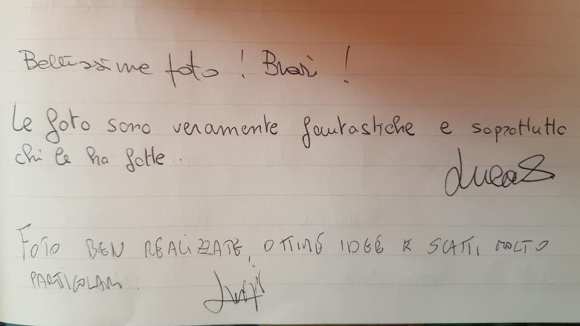 Bellissime foto! Bravi!
Le foto sono veramente fantastiche e soprattutto
chi le ha fatte.
Lucas
FOTO BEN REALIZZATE, OTTIME IDEE E SCATTI MOLTO
PARTICOLARI.
Luigi